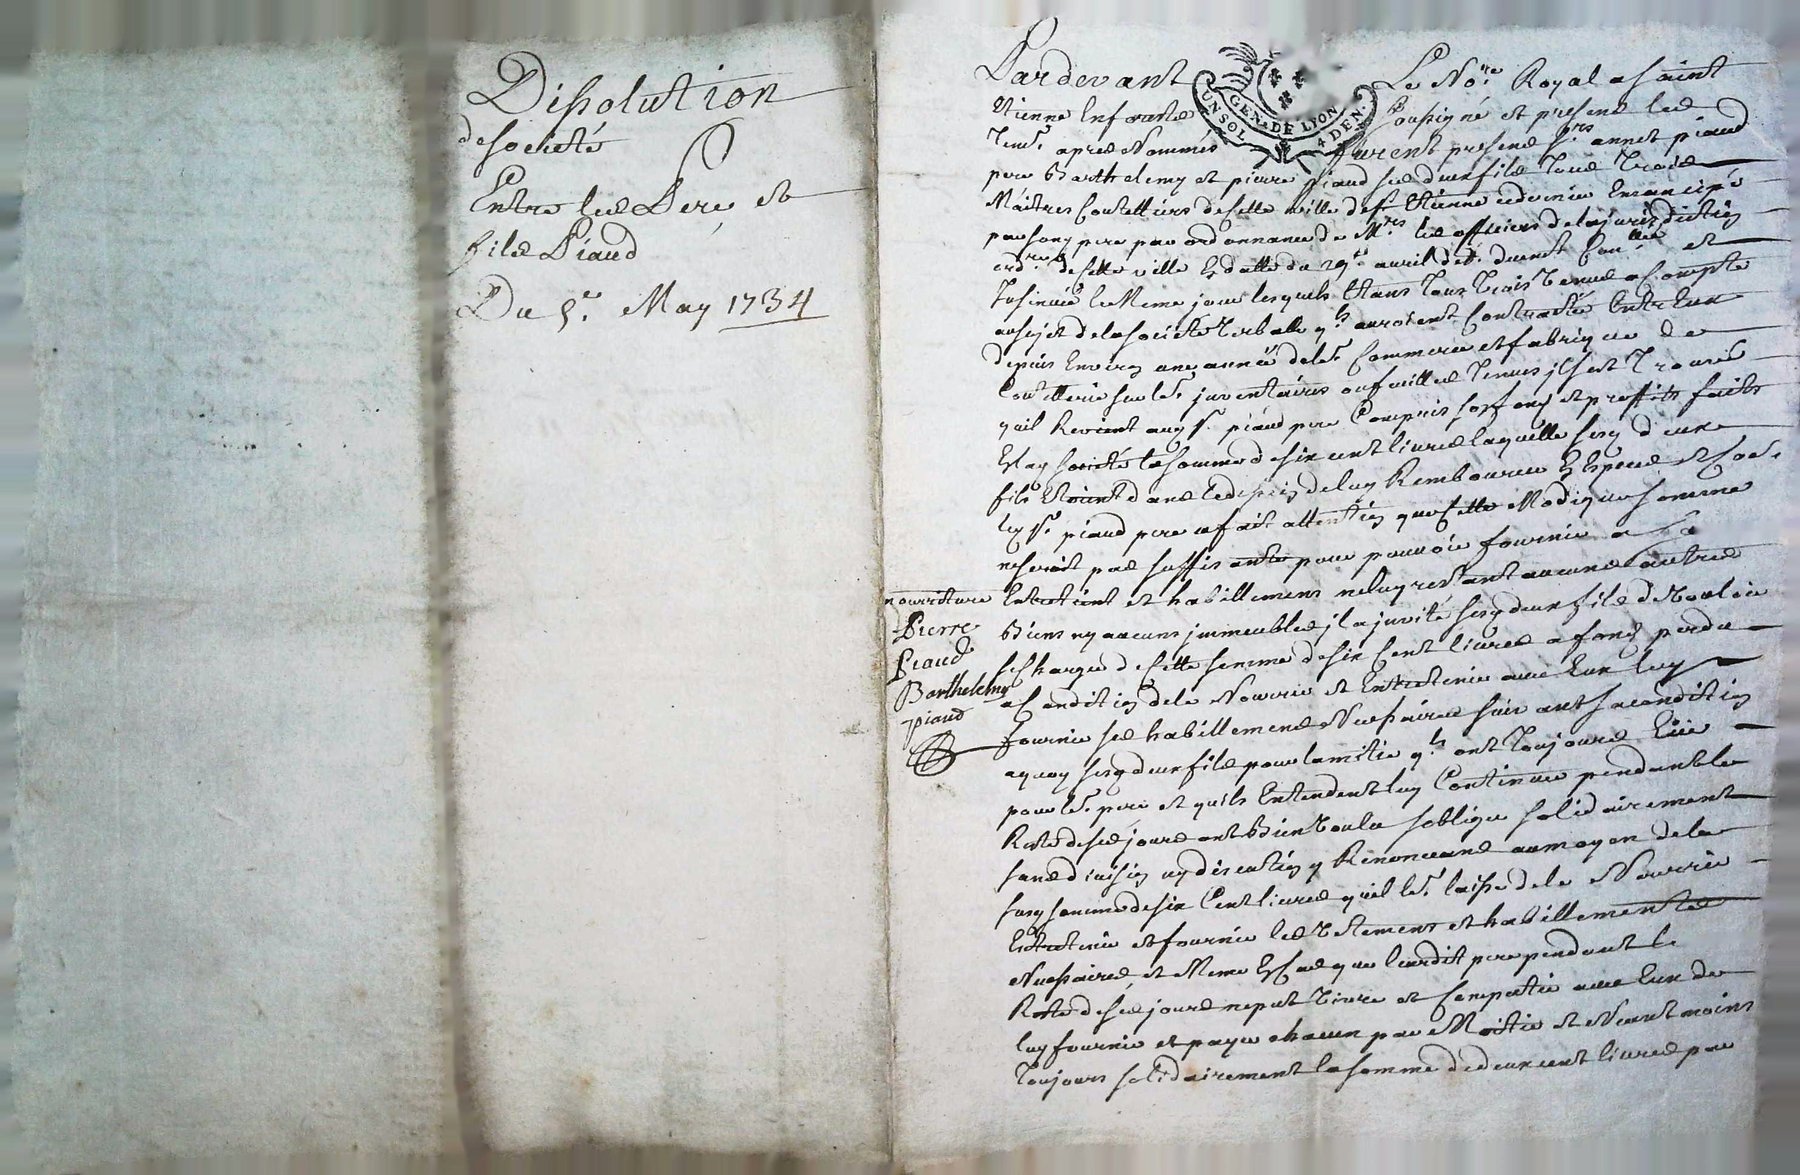 Dissolution
de société
Entre les Pere et
fils Piaud
Du 5e. May 1734
Pardevant Le Nore. Royal a saint
Etienne En forets soussigné et present les
Tem̃s. apres Nommés furent presens Srs annet piaud
pere Barthelemy et pierre piaud ses deux fils Tous Trois
Maitres Coutelliers de cette ville de st Etienne ce dernier Emancipé
par son pere par ordonnance de Mrs les officiers de la jurisdiction
ordre. de cette ville En datte du 29e. avril dt. duement Conllée et
Insinuée le Meme jour lesquels Etans Tous Trois Venus a Compte
au sujet de la société verballe qls auroient Contractée Entr Eux
depuis Environ une année de leur Commerce et fabrique de
Coutellerie sur les inventaires ou feuilles Tenus il s'est Trouvé
qu'il Revient aud Sr. piaud pere Compris son fond et proffits faits
En lad société la somme de six cent livres laquelle sesd deux
fils Etoient dans le dessein de luy Rembourcer En Espece
led Sr. piaud pere a fait attention que cette Modique somme
ne seroit pas suffisante pour pouvoir fournir a sa
nourriture Entretient et habillement ne luy restant aucuns autres
Biens ny aucuns immeubles il a invité sesd deux fils de Vouloir
se Charger de cette somme de six Cent livres a fond perdu
a Condition de le Nourrir et Entretenir avec Eux luy
fournir ses habillemens Necessaires suivant sa condition
a quoy sesd deux fils pour l'amitié qls ont Toujours Eüe
pour leur pere et quils Entendent luy Continuer pendant le
Reste de ses jours ont Bien Voulu s'obliger solidairement
sans division ny discution y Renonceans au moyen de la
susd somme de six Cent livres qu'il leur laisse de le Nourrir
Entretenir et fournir les Vetemens et habillements
Necessaires et Meme En Cas que leurdit pere pendant le
Reste de ses jours ne put Vivre et Compatir avec Eux de
luy fournir et payer chacun par Moitié et Neantmoins
Toujours solidairement la somme de deux cent livres par
Pierre
Piaud
Barthelemy
piaud
GEN. DE LYON
UN SOL 4 DEN.